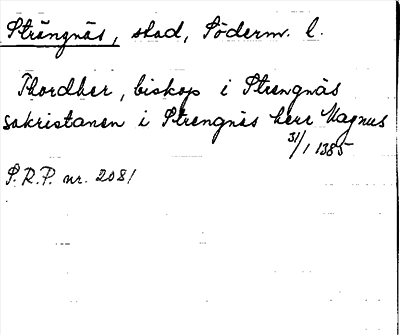 Strängnäs, stad, Söderm. l.
Thordher, biskop i Strengnäs
sakristanen i Strengnäs herr Magnus
31/1 1385
S.R.P. nr. 2081